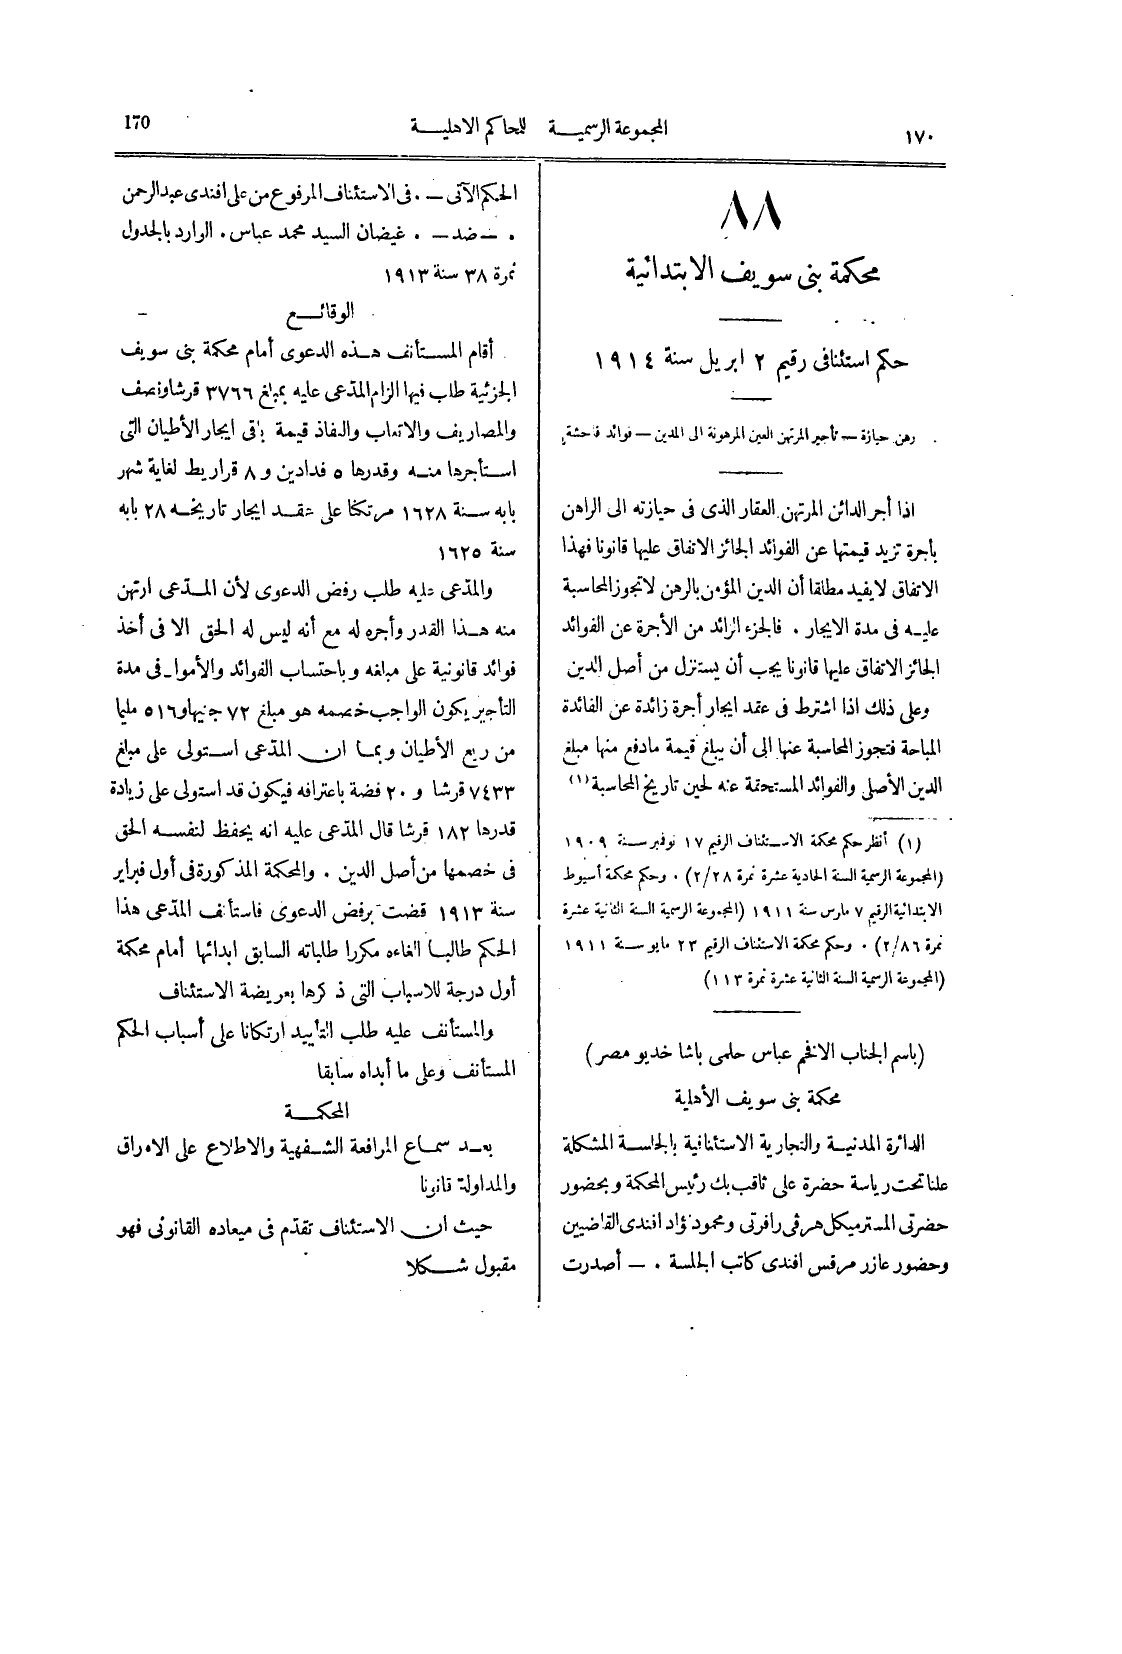 ١٧٠
المجموعة الرسمية للحاكم الاهلية
170
٨٨
محكمة بنى سويف الابتدائية
حكم استئنافى رقيم ٢ ابريل سنة ١٩١٤
رهن حيازة — تأجير المرتهن العين المرهونة الى المدين — فوائد فاحشة
اذا أجر الدائن المرتهن العقار الذى فى حيازته الى الراهن
بأجرة تزيد قيمتها عن الفوائد الجائز الاتفاق عليها قانونا فهذا
الاتفاق لا يفيد مطلقا أن الدين المؤمن بالرهن لا تجوز المحاسبة
عليه فى مدة الايجار . فالجزء الزائد من الأجرة عن الفوائد
الجائز الاتفاق عليها قانونا يجب أن يستنزل من أصل الدين
وعلى ذلك اذا اشترط فى عقد ايجار أجرة زائدة عن الفائدة
المباحة فتجوز المحاسبة عنها الى أن يبلغ قيمة مادفع منها مبلغ
الدين الأصلى والفوائد المستحقة عنه لحين تاريخ المحاسبة (١)
(١) أنظر حكم محكمة الاستئناف الرقيم ١٧ نوفمبر سنة ١٩٠٩
(المجموعة الرسمية السنة الحادية عشرة نمرة ٢/٢٨) . وحكم محكمة أسيوط
الابتدائية الرقيم ٧ مارس سنة ١٩١١ (المجموعة الرسمية السنة الثانية عشرة
نمرة ٢/٨٦) . وحكم محكمة الاستئناف الرقيم ٢٣ مايو سنة ١٩١١
(المجموعة الرسمية السنة الثانية عشرة نمرة ١١٣)
(باسم الجناب الافخم عباس حلمى باشا خديو مصر)
محكمة بنى سويف الأهلية
الدائرة المدنية والتجارية الاستئنافية بالجلسة المشكلة
علنا تحت رياسة حضرة على ثاقب بك رئيس المحكمة وبحضور
حضرتى المستر ميكل هرفى رافرتى ومحمود فؤاد افندى القاضيين
وحضور عازر مرقس افندى كاتب الجلسة . — أصدرت
الحكم الآتى — . فى الاستئناف المرفوع من على افندى عبدالرحمن
. — ضد — . غيضان السيد محمد عباس . الوارد بالجدول
نمرة ٣٨ سنة ١٩١٣
الوقائع
أقام المستأنف هذه الدعوى أمام محكمة بنى سويف
الجزئية طلب فيها الزام المدّعى عليه بمبلغ ٣٧٦٦ قرشا ونصف
والمصاريف والاتعاب والنفاذ قيمة باقى ايجار الأطيان التى
استأجرها منه وقدرها ٥ فدادين و ٨ قراريط لغاية شهر
بابه سنة ١٦٢٨ مرتكنا على عقد ايجار تاريخه ٢٨ بابه
سنة ١٦٢٥
والمدّعى عليه طلب رفض الدعوى لأن المدّعى ارتهن
منه هذا القدر وأجره له مع أنه ليس له الحق الا فى أخذ
فوائد قانونية على مبلغه وباحتساب الفوائد والأموال فى مدة
التأجير يكون الواجب خصمه هو مبلغ ٧٢ جنيها و ٥١٦ مليما
من ريع الأطيان وبما ان المدّعى استولى على مبلغ
٧٤٣٣ قرشا و ٢٠ فضة باعترافه فيكون قد استولى على زيادة
قدرها ١٨٢ قرشا قال المدّعى عليه انه يحفظ لنفسه الحق
فى خصمها من أصل الدين . والمحكمة المذكورة فى أول فبراير
سنة ١٩١٣ قضت برفض الدعوى فاستأنف المدّعى هذا
الحكم طالبا الغاءه مكررا طلباته السابق ابدائها أمام محكمة
أول درجة للاسباب التى ذكرها بعريضة الاستئناف
والمستأنف عليه طلب التأييد ارتكانا على أسباب الحكم
المستأنف وعلى ما أبداه سابقا
المحكمة
بعد سماع المرافعة الشفهية والاطلاع على الاوراق
والمداولة قانونا
حيث ان الاستئناف تقدّم فى ميعاده القانونى فهو
مقبول شكلا